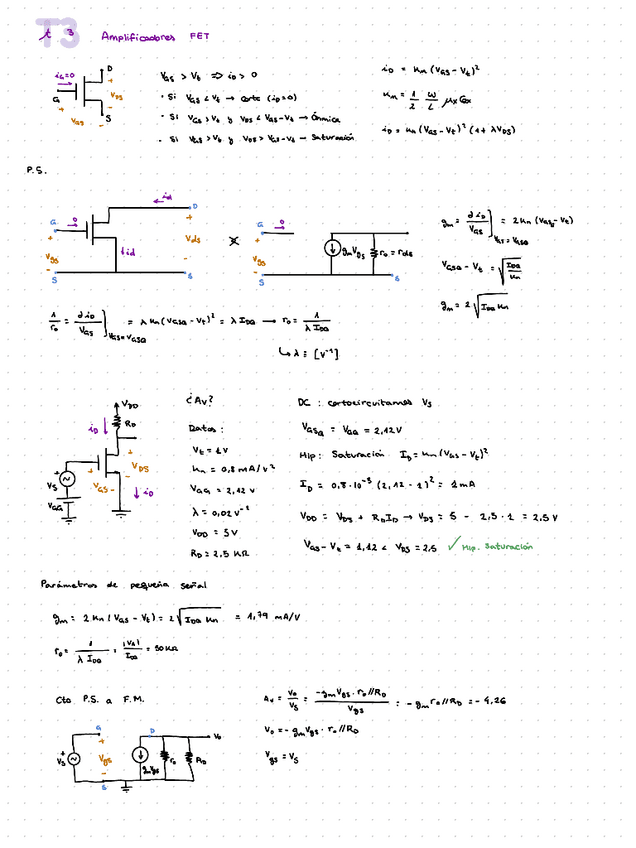 T3
t 3 Amplificadores FET
iG=0
D
G
S
+
VDS
-
+
VGS
-
VGS > Vt => iD > 0
· Si VGS < Vt → Corte (iD=0)
· Si VGS > Vt y VDS < VGS-Vt → Óhmica
· Si VGS > Vt y VDS > VGS-Vt → Saturación
iD = Kn (VGS - Vt)²
Kn = 1/2 W/L μn Cox
iD = Kn (VGS - Vt)² (1 + λVDS)
P.S.
← id
G
0
D
+
Vgs
-
↓id
+
Vds
-
S
S
G
0
+
Vgs
-
gmVgs
ro = rds
S
S
gm = ∂iD/VGS ]VGS=VGSQ = 2Kn (VGSQ - Vt)
VGSQ - Vt = √(IDQ/Kn)
gm = 2 √(IDQ Kn)
1/ro = ∂iD/VGS ]VGS=VGSQ = λ Kn (VGSQ - Vt)² = λ IDQ → ro = 1/(λ IDQ)
↳ λ ≡ [V⁻¹]
VDD
iD ↓
RD
+
VDS
-
VGS
↓ iD
VS
VGG
¿Av?
Datos:
Vt = 1V
Kn = 0,8 mA/V²
VGG = 2,12 V
λ = 0,02 V⁻¹
VDD = 5V
RD = 2,5 KΩ
DC : cortocircuitamos Vs
VGSQ = VGG = 2,12V
Hip: Saturación ID = Kn (VGS - Vt)²
ID = 0,8·10⁻³ (2,12 - 1)² = 1mA
VDD = VDS + RD ID → VDS = 5 - 2,5·1 = 2,5V
VGS - Vt = 1,12 < VDS = 2,5 ✓ Hip. Saturación
Parámetros de pequeña señal
gm = 2 Kn (VGS - Vt) = 2 √(IDQ Kn) = 1,79 mA/V
ro = 1/(λ IDQ) = |VA|/IDQ = 50 KΩ
Cto P.S. a F.M.
G
D
Vo
+
VS
-
+
Vgs
-
gmVgs
ro
RD
S
Av = Vo/Vs = (-gmVgs · ro//RD)/Vgs = -gm ro//RD = -4,26
Vo = -gmVgs · ro//RD
Vgs = Vs